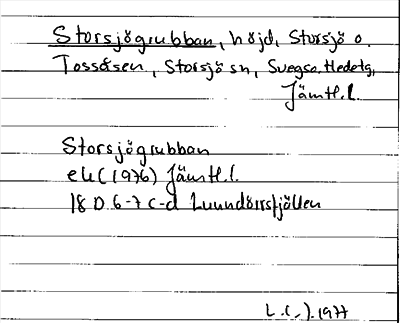 Storsjögrubban, höjd, Storsjö o.
Tossåsen, Storsjö sn, Svegs o. Hedetg,
Jämtl. l.
Storsjögrubban
ek (1976) Jämtl. l.
18 D 6-7 c-d Lunndörrsfjällen
1977